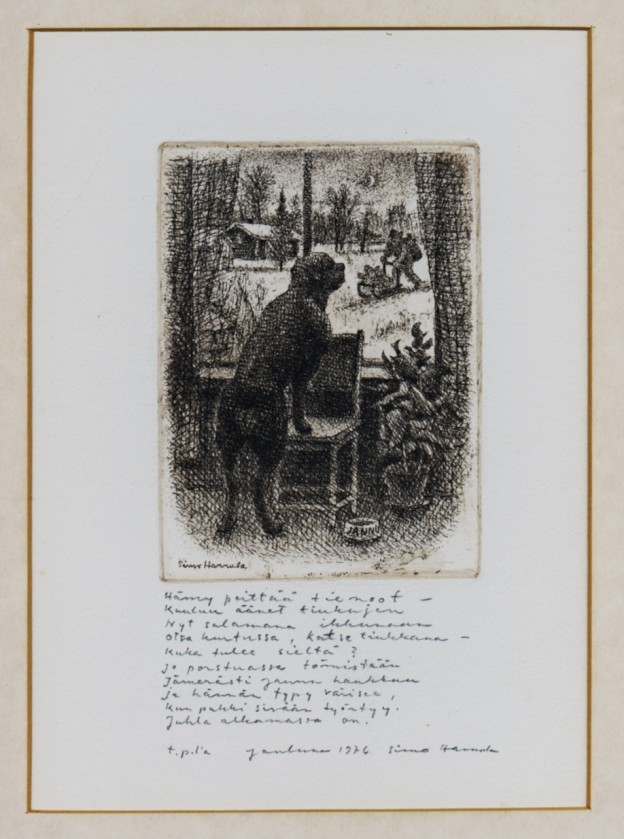 JANNU
Simo Hannula
Hämy peittää tienoot –
Kuuluu äänet tiukujen
Nyt salamana ikkunaan
otsa kurtussa, katse tiukkana –
Kuka tulee sieltä?
jo porstuassa tömistään
Jämerästi Jannu haukkuu
ja hännän typy värisee,
kun pukki sisään työntyy.
Juhla alkamassa on.
t.p.l'a jouluna 1976 Simo Hannula